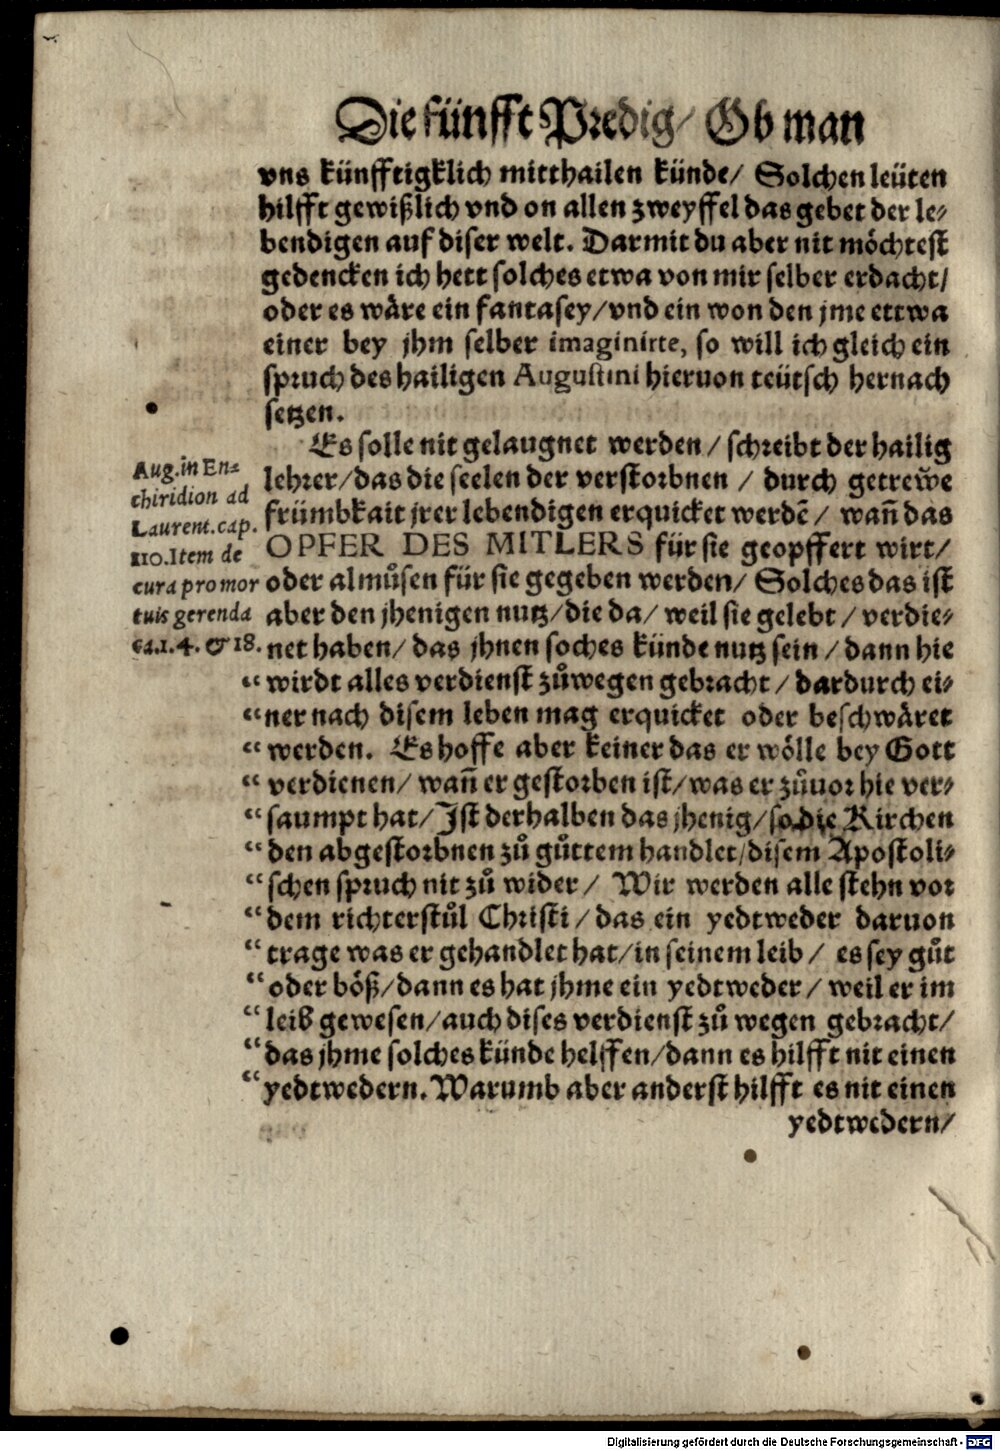 Die fünfft Predig/ Ob man
vns künfftigklich mitthailen künde/ Solchen leüten
hilfft gewißlich vnd on allen zweyffel das gebet der le⸗
bendigen auf diser welt. Darmit du aber nit möchtest
gedencken ich hett solches etwa von mir selber erdacht/
oder es wäre ein fantasey/vnd ein won den jme ettwa
einer bey jhm selber imaginirte, so will ich gleich ein
spruch des hailigen Augustini hieruon teütsch hernach
setzen.
Es solle nit gelaugnet werden/ schreibt der hailig
lehrer/das die seelen der verstorbnen / durch getrewe
frümbkait jrer lebendigen erquicket werdē/ wañ das
OPFER DES MITLERS für sie geopffert wirt/
oder almůsen für sie gegeben werden/ Solches das ist
aber den jhenigen nutz/die da/ weil sie gelebt / verdie⸗
net haben/ das jhnen soches künde nutz sein / dann hie
“ wirdt alles verdienst zůwegen gebracht/ dardurch ei⸗
“ ner nach disem leben mag erquicket oder beschwäret
“ werden. Es hoffe aber keiner das er wölle bey Gott
“ verdienen/ wañ er gestorben ist/was er zůuor hie ver⸗
“ saumpt hat/ Ist derhalben das jhenig/so die Kirchen
“ den abgestorbnen zů gůttem handlet/disem Apostoli⸗
“ schen spruch nit zů wider/ Wir werden alle stehn vor
“ dem richterstůl Christi/ das ein yedtweder daruon
“ trage was er gehandlet hat/in seinem leib/ es sey gůt
“ oder böß/dann es hat jhme ein yedtweder/ weil er im
“ leib gewesen/auch dises verdienst zů wegen gebracht/
“ das jhme solches künde helffen/dann es hilfft nit einen
“ yedtwedern. Warumb aber anderst hilfft es nit einen
yedtwedern/
Aug. in En⸗
chiridion ad
Laurent. cap.
110. Item de
cura pro mor
tuis gerenda
ca. 1. 4. & 18.
Digitalisierung gefördert durch die Deutsche Forschungsgemeinschaft - DFG